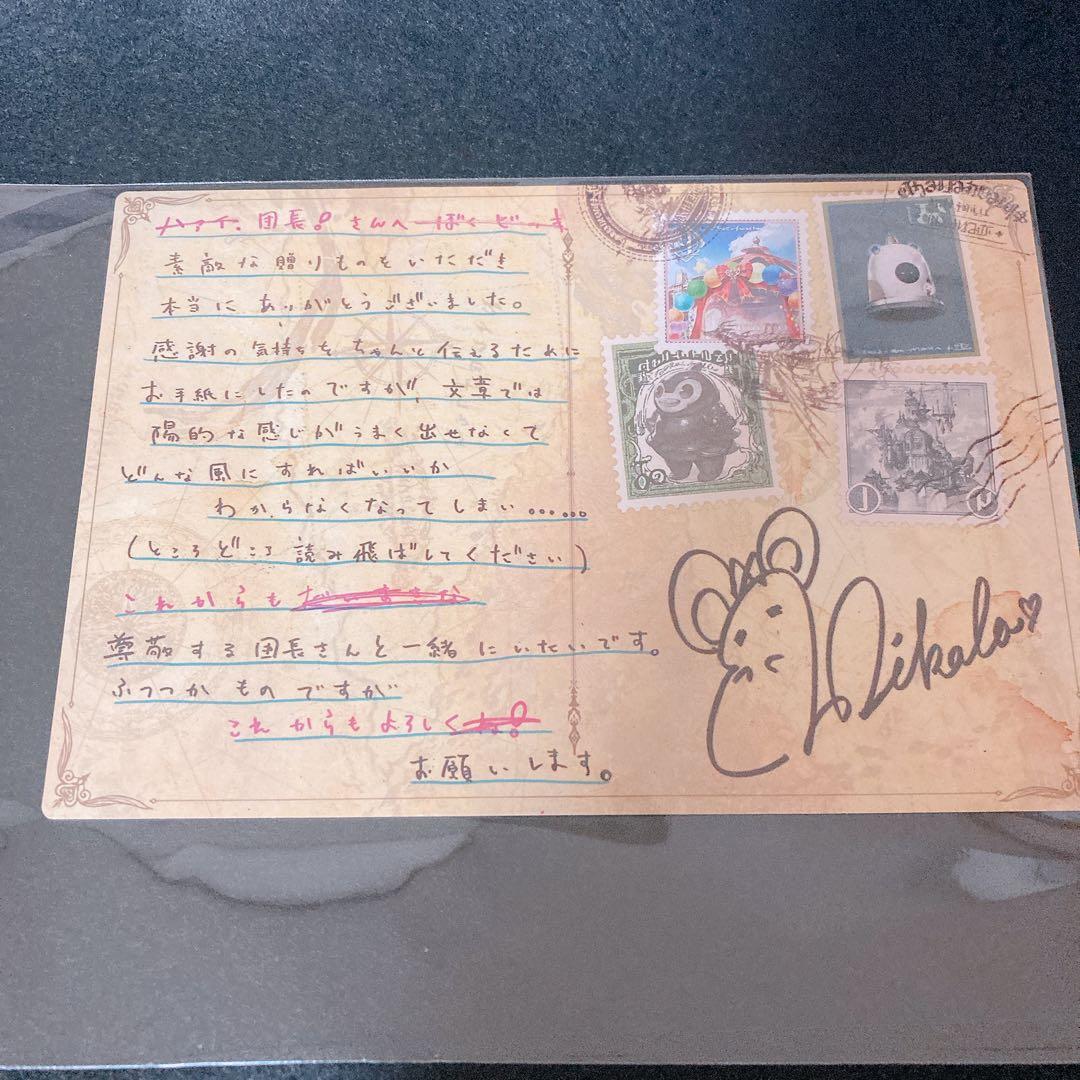 ハァイ、団長!さんへ ぼくビッキ
素敵な贈りものをいただき
本当にありがとうございました。
感謝の気持ちをちゃんと伝えるために
お手紙にしたのですが、文章では
陽的な感じがうまく出せなくて
どんな風にすればいいか
わからなくなってしまい……
(ところどころ読み飛ばしてください)
これからも
尊敬する団長さんと一緒にいたいです。
ふつつかものですが
これからもよろしくね!
お願いします。
Nikala